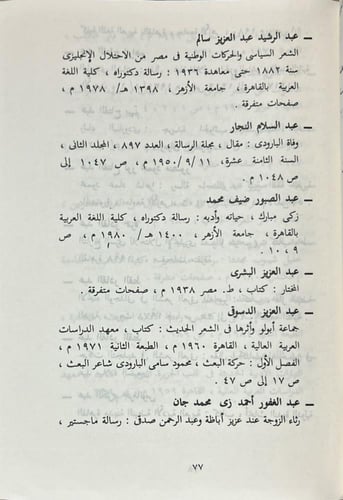 ــ عبد الرشيد عبد العزيز سالم
الشعر السياسى والحركات الوطنية فى مصر من الاحتلال الإنجليزى
سنة ١٨٨٢ حتى معاهدة ١٩٣٦ : رسالة دكتوراه ، كلية اللغة
العربية بالقاهرة ، جامعة الأزهر ، ١٣٩٨ هـ / ١٩٧٨ م ،
صفحات متفرقة .
ــ عبد السلام النجار
وفاة البارودى : مقال ، مجلة الرسالة ، العدد ٨٩٧ ، المجلد الثانى ،
السنة الثامنة عشرة ، ١٩٥٠/٩/١١ م ، ص ١٠٤٧ إلى
ص ١٠٤٨ م .
ــ عبد الصبور ضيف محمد
زكى مبارك ، حياته وأدبه : رسالة دكتوراه ، كلية اللغة العربية
بالقاهرة ، جامعة الأزهر ، ١٤٠٠ هـ / ١٩٨٠ م ، ص
٩ ، ١٠ .
ــ عبد العزيز البشرى
المختار : كتاب ، ط . مصر ١٩٣٨ م ، صفحات متفرقة .
ــ عبد العزيز الدسوق
جماعة أبولو وأثرها فى الشعر الحديث : كتاب ، معهد الدراسات
العربية العالية ، القاهرة ١٩٦٠ م ، الطبعة الثانية ١٩٧١ م ،
الفصل الأول : حركة البعث ، محمود سامى البارودى شاعر البعث ،
ص ١٧ إلى ص ٤٧ .
ــ عبد الغفور أحمد زى محمد جان
رثاء الزوجة عند عزيز أباظة وعبد الرحمن صدقى : رسالة ماجستير ،
٧٧